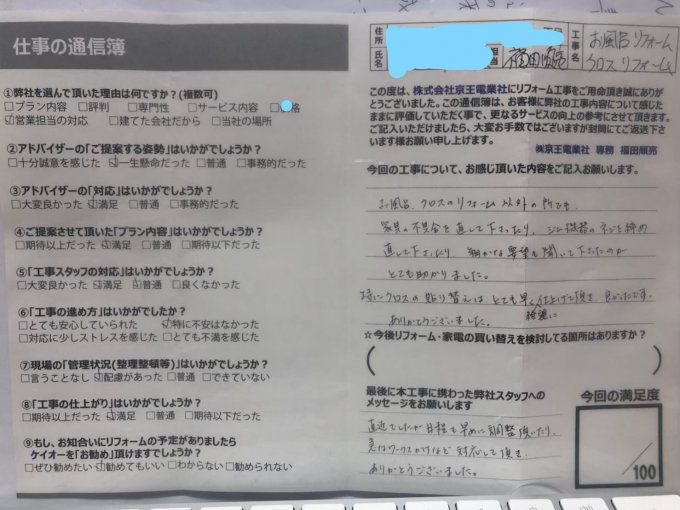 仕事の通信簿
①弊社を選んで頂いた理由は何ですか？(複数可)
□プラン内容 □評判 □専門性 □サービス内容 □格
☑営業担当の対応 □建てた会社だから □当社の場所
②アドバイザーの「ご提案する姿勢」はいかがでしょうか？
□十分誠意を感じた ☑一生懸命だった □普通 □事務的だった
③アドバイザーの「対応」はいかがでしょうか？
□大変良かった ☑満足 □普通 □事務的だった
④ご提案させて頂いた「プラン内容」はいかがでしょうか？
□期待以上だった ☑満足 □普通 □期待以下だった
⑤「工事スタッフの対応」はいかがでしょうか？
□大変良かった ☑満足 ☑普通 □良くなかった
⑥「工事の進め方」はいかがでしたか？
□とても安心していられた ☑特に不安はなかった
□対応に少しストレスを感じた □とても不満を感じた
⑦現場の「管理状況(整理整頓等)」はいかがでしょうか？
□言うことなし ☑配慮があった □普通 □できていない
⑧「工事の仕上がり」はいかがでしょうか？
□期待以上だった ☑満足 □普通 □期待以下だった
⑨もし、お知合いにリフォームの予定がありましたら
ケイオーを「お勧め」頂けますでしょうか？
□ぜひ勧めたい ☑勧めてもいい □わからない □勧められない
住所
氏名
担当
福田順亮
工事名
お風呂リフォーム
クロスリフォーム
この度は、株式会社京王電業社にリフォーム工事をご用命頂き誠にありが
とうございました。この通信簿は、お客様に弊社の工事内容について感じた
ままに評価していただく事で、更なるサービスの向上の参考にさせて頂きます。
ご記入いただけましたら、大変お手数ではございますが封筒にてご返送下さ
います様お願い申し上げます。
㈱京王電業社 専務 福田順亮
今回の工事について、お感じ頂いた内容をご記入お願いします。
お風呂、クロスのリフォーム以外の所でも、
家具の不具合を直して下さったり、シャワー機器のネジを締め
直して下さったり、細かな要望も聞いて下さったのが
とても助かりました。
特にクロスの貼り替えは、とても早く綺麗に仕上げて頂き、良かったです。
ありがとうございました。
☆今後リフォーム・家電の買い替えを検討してる箇所はありますか？
最後に本工事に携わった弊社スタッフへの
メッセージをお願いします
直近でしたが日程も早めに調整頂いたり、
急なワックスがけなど対応して頂き
ありがとうございました。
今回の満足度
/100